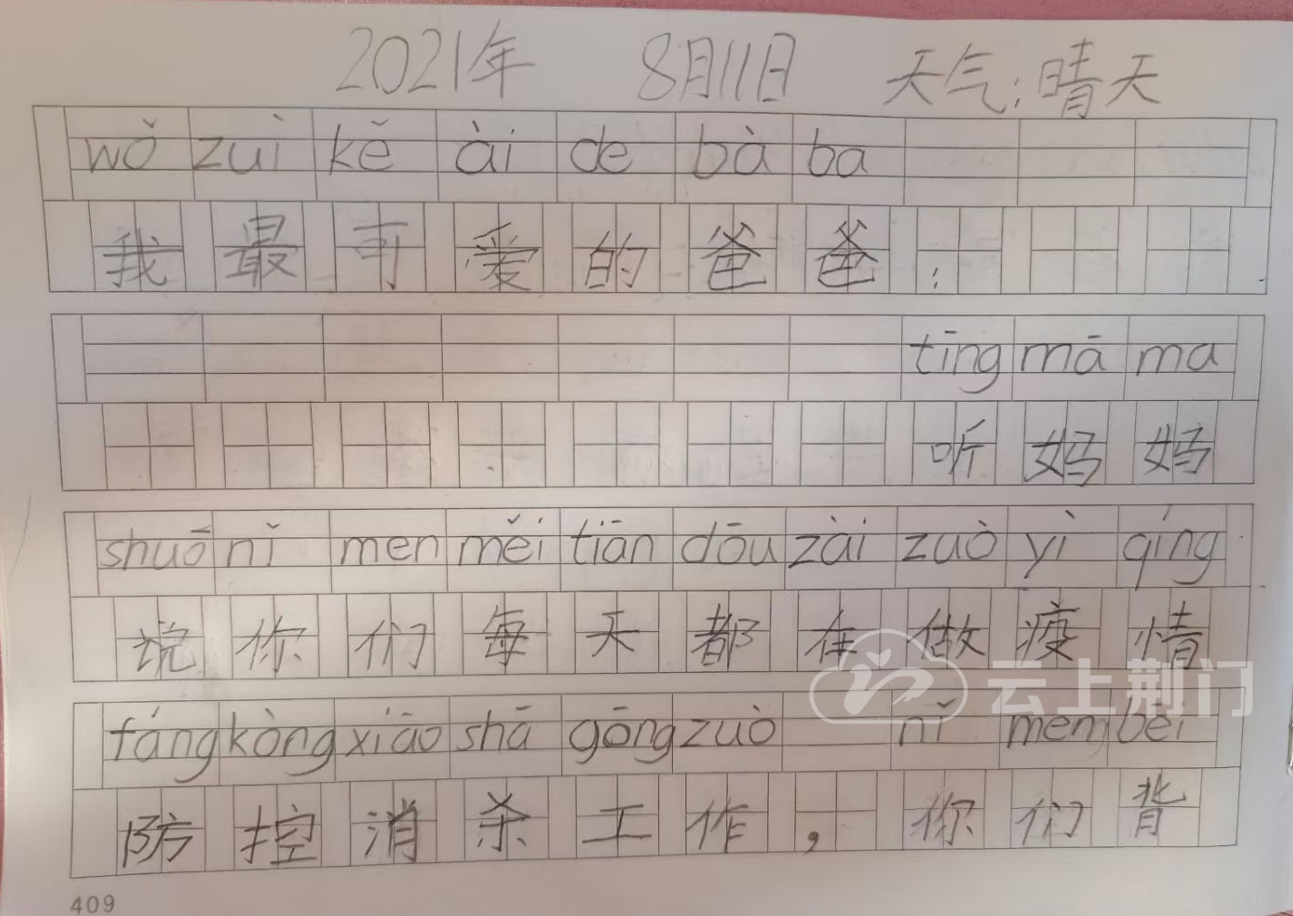 2021年 8月11日 天气:晴天
wǒ zuì kě ài de bà ba
我最可爱的爸爸:
tīng mā ma
听妈妈
shuō nǐ men měi tiān dōu zài zuò yì qíng
说你们每天都在做疫情
云上荆门
fáng kòng xiāo shā gōng zuò nǐ men bēi
防控消杀工作,你们背
409